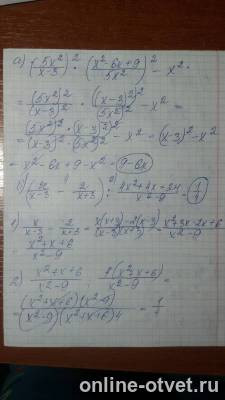 а) (5x²/x-3)² · (x²-6x+9/5x²)² - x² ·
= (5x²)²/(x-3)² · ((x-3)²)²/(5x²)² - x² =
= (5x²)² · (x-3)²)²/(x-3)² · (5x²)² - x² = (x-3)² - x²
= x² - 6x + 9 - x² = 9-6x
x/x-3 - 2/x+3 = x(x+3)-2(x-3)/(x-3)(x+3) = x²+3x-2x+6/x²-9
= x²+x+6/x²-9
2) x²+x+6/x²-9 :
= (x²+x+6)(x²-9)/(x²-9)(x²+x+6)4 =
online-otvet.ru